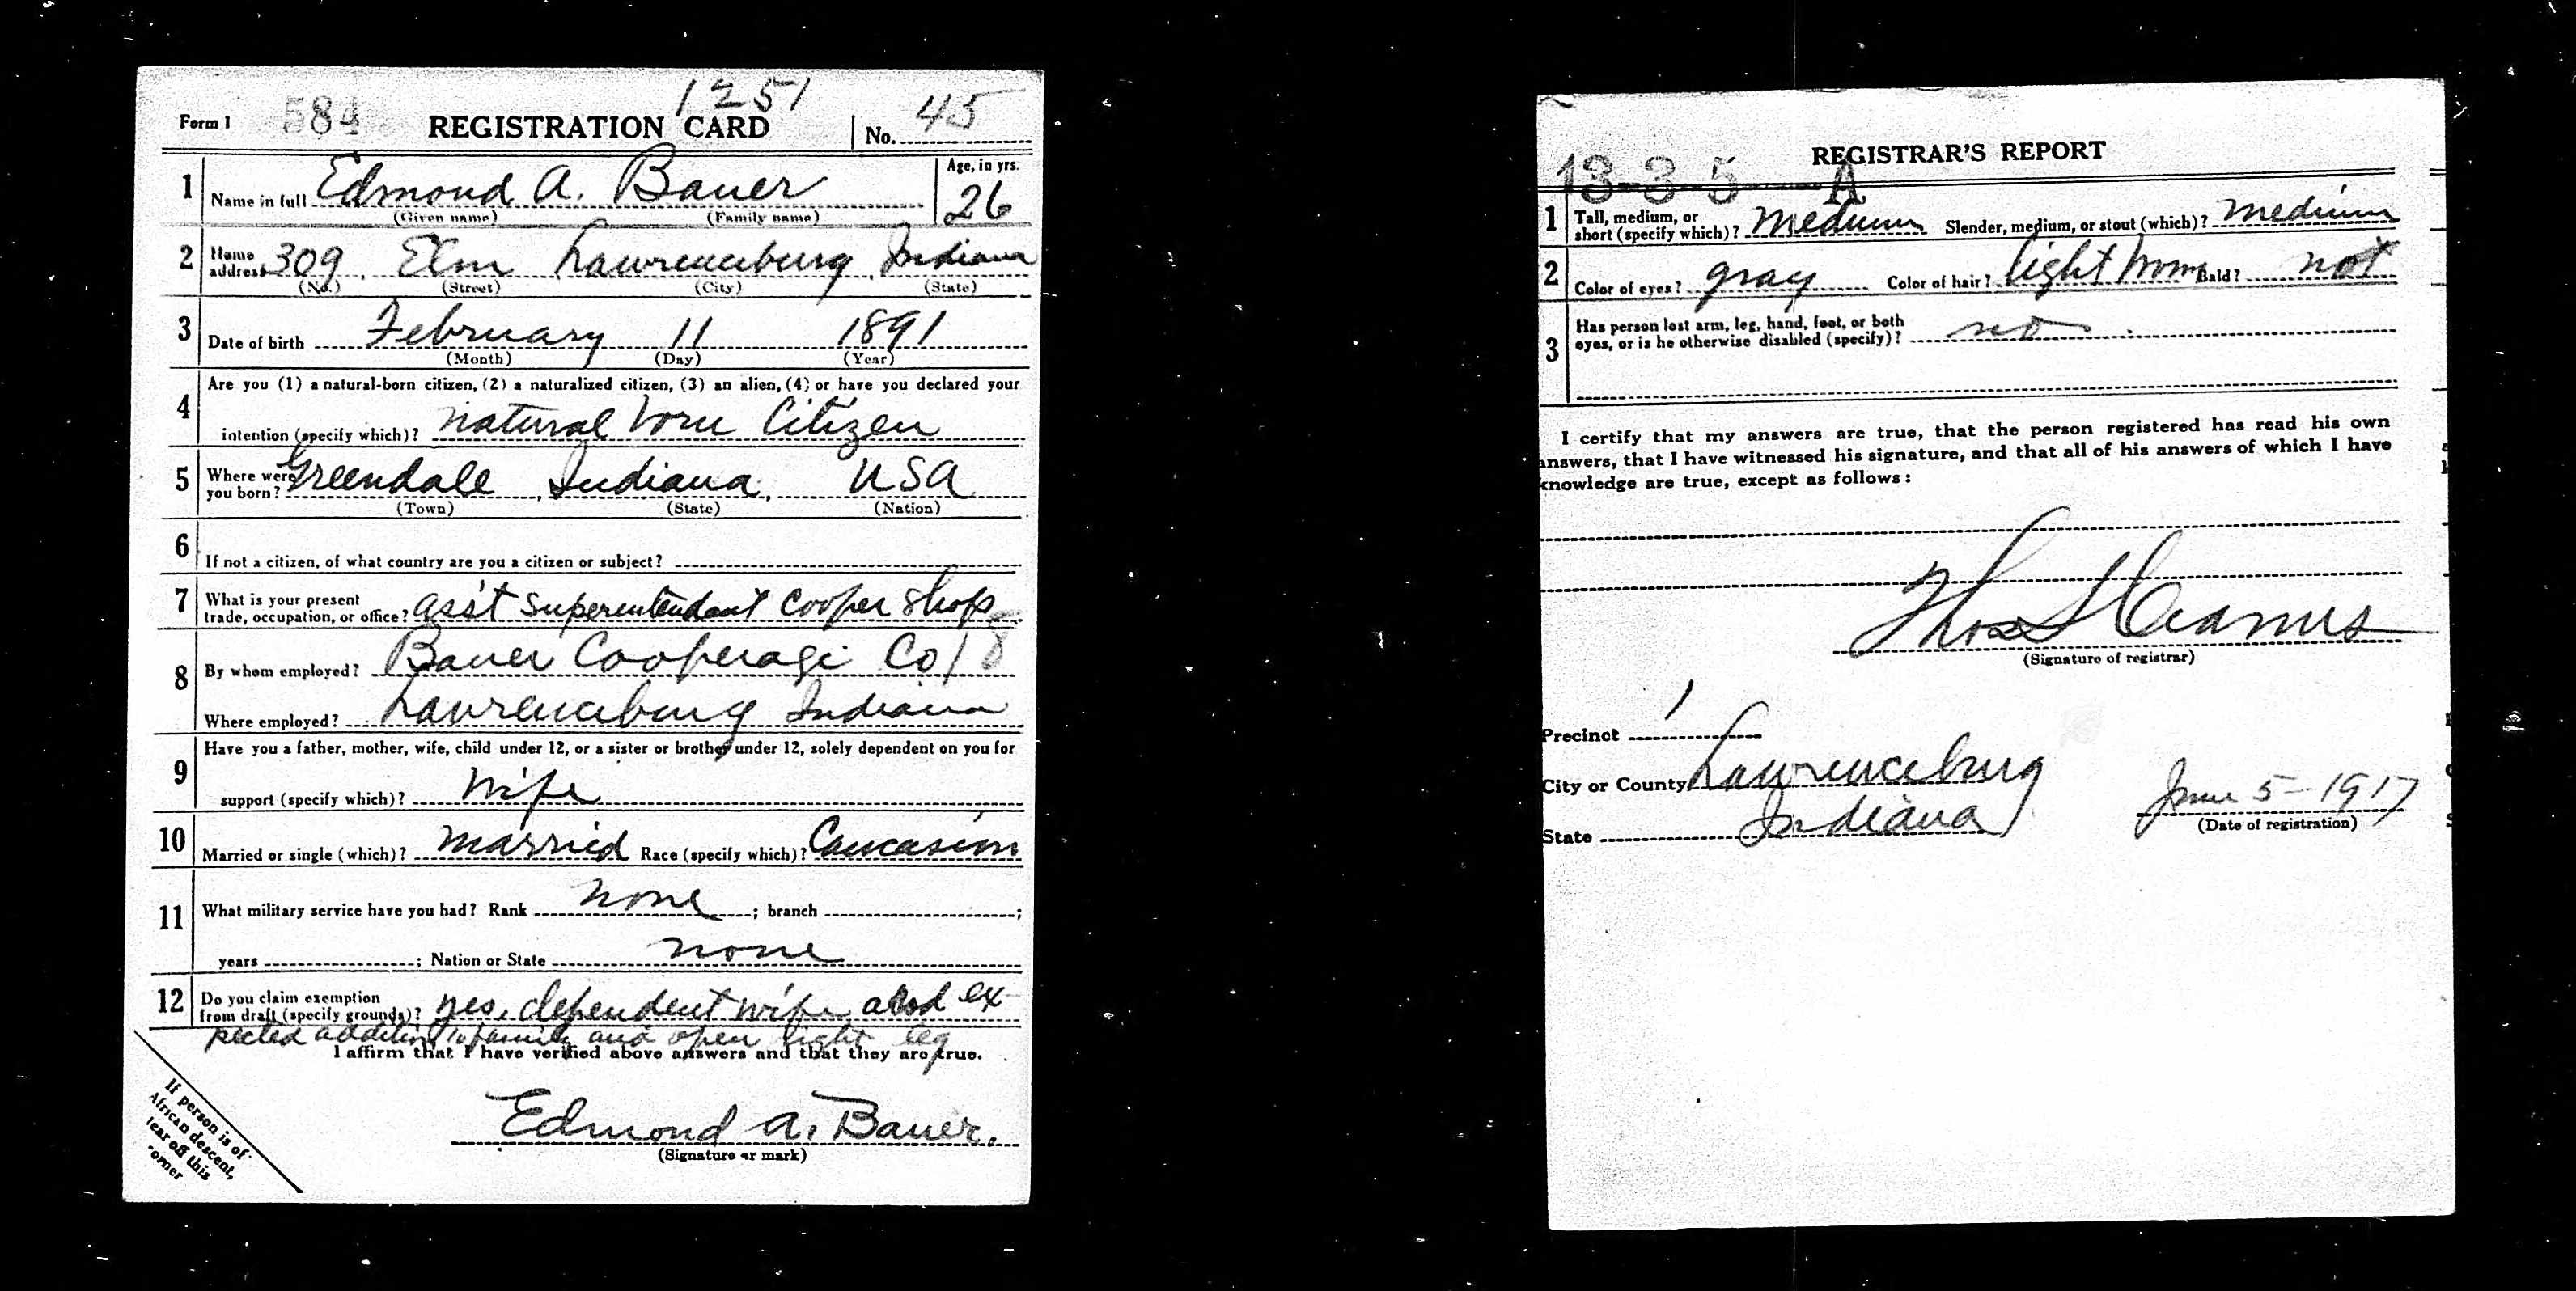 1251
Form 1 584 REGISTRATION CARD No. 45
1 Name in full Edmond A. Bauer Age, in yrs. 26
(Given name) (Family name)
2 Home address 309 Elm Lawrenceburg Indiana
(No.) (Street) (City) (State)
3 Date of birth February 11 1891
(Month) (Day) (Year)
4 Are you (1) a natural-born citizen, (2) a naturalized citizen, (3) an alien, (4) or have you declared your
intention (specify which)? natural born Citizen
5 Where were you born? Greendale, Indiana, USA
(Town) (State) (Nation)
6 If not a citizen, of what country are you a citizen or subject?
7 What is your present trade, occupation, or office? ass't superentendant cooper shop
8 By whom employed? Bauer Cooperage Co 18
Where employed? Lawrenceburg Indiana
9 Have you a father, mother, wife, child under 12, or a sister or brother under 12, solely dependent on you for
support (specify which)? Wife
10 Married or single (which)? married Race (specify which)? Caucasion
11 What military service have you had? Rank none ; branch ;
years ; Nation or State none
12 Do you claim exemption from draft (specify grounds)? yes, dependent wife and ex-
pected addition to family and open right leg
I affirm that I have verified above answers and that they are true.
Edmond A. Bauer.
(Signature or mark)
If person is of
African descent,
tear off this
corner
REGISTRAR'S REPORT
13-3-5-A
1 Tall, medium, or short (specify which)? Medium Slender, medium, or stout (which)? Medium
2 Color of eyes? gray Color of hair? light brown Bald? not
3 Has person lost arm, leg, hand, foot, or both
eyes, or is he otherwise disabled (specify)? no
I certify that my answers are true, that the person registered has read his own
answers, that I have witnessed his signature, and that all of his answers of which I have
knowledge are true, except as follows:
Thos
(Signature of registrar)
Precinct 1
City or County Lawrenceburg
State Indiana June 5-1917
(Date of registration)